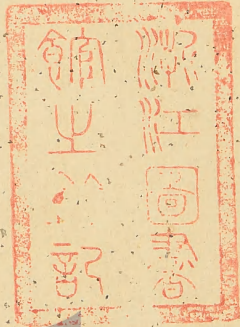 浙江圖書
館之小記